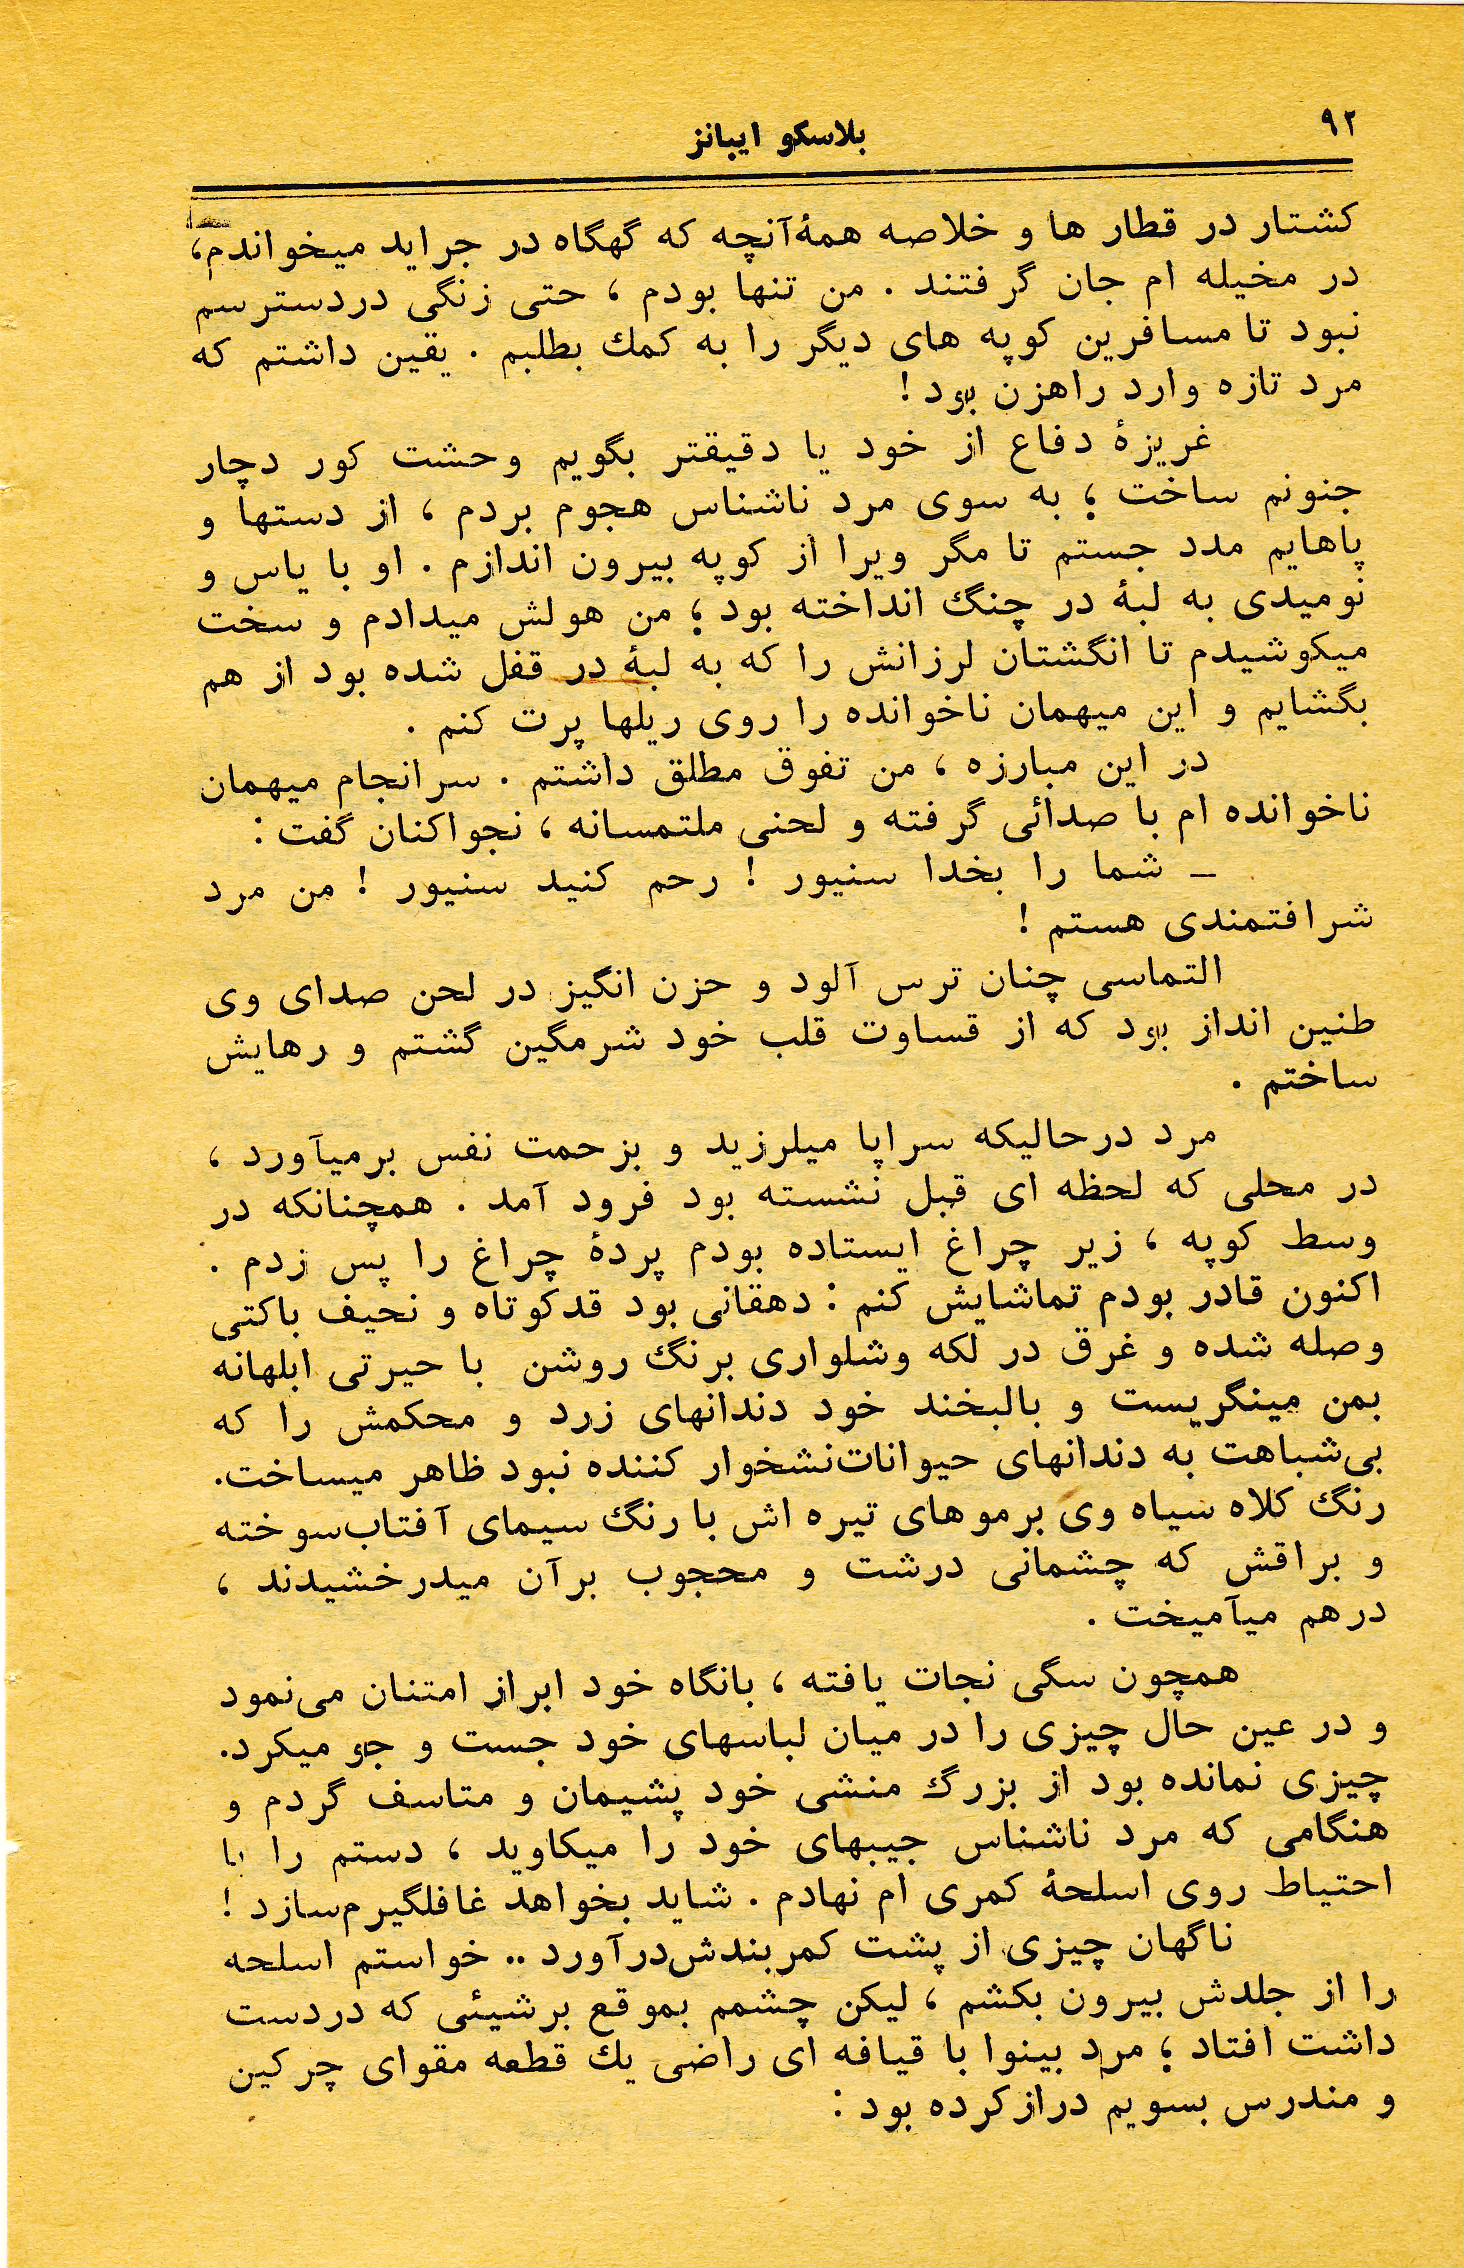 ۹۲
بلاسکو ایبانز
کشتار در قطار ها و خلاصه همهٔ‌آنچه که گهگاه در جراید میخواندم،
در مخیله ام جان گرفتند . من تنها بودم ، حتی زنگی دردسترسم
نبود تا مسافرین کوپه های دیگر را به کمك بطلبم . یقین داشتم که
مرد تازه وارد راهزن بود !
غریزهٔ دفاع از خود یا دقیقتر بگویم وحشت کور دچار
جنونم ساخت ؛ به سوی مرد ناشناس هجوم بردم ، از دستها و
پاهایم مدد جستم تا مگر ویرا از کوپه بیرون اندازم . او با یاس و
نومیدی به لبهٔ در چنگ انداخته بود ؛ من هولش میدادم و سخت
میکوشیدم تا انگشتان لرزانش را که به لبهٔ در قفل شده بود از هم
بگشایم و این میهمان ناخوانده را روی ریلها پرت کنم .
در این مبارزه ، من تفوق مطلق داشتم . سرانجام میهمان
ناخوانده ام با صدائی گرفته و لحنی ملتمسانه ، نجواکنان گفت :
ـ شما را بخدا سنیور ! رحم کنید سنیور ! من مرد
شرافتمندی هستم !
التماسی چنان ترس آلود و حزن انگیز در لحن صدای وی
طنین انداز بود که از قساوت قلب خود شرمگین گشتم و رهایش
ساختم .
مرد درحالیکه سراپا میلرزید و بزحمت نفس برمیآورد ،
در محلی که لحظه ای قبل نشسته بود فرود آمد . همچنانکه در
وسط کوپه ، زیر چراغ ایستاده بودم پردهٔ چراغ را پس زدم .
اکنون قادر بودم تماشایش کنم : دهقانی بود قدکوتاه و نحیف باکتی
وصله شده و غرق در لکه وشلواری برنگ روشن با حیرتی ابلهانه
بمن مینگریست و بالبخند خود دندانهای زرد و محکمش را که
بی‌شباهت به دندانهای حیوانات‌نشخوار کننده نبود ظاهر میساخت.
رنگ کلاه سیاه وی برموهای تیره اش با رنگ سیمای آفتاب‌سوخته
و براقش که چشمانی درشت و محجوب برآن میدرخشیدند ،
درهم میآمیخت .
همچون سگی نجات یافته ، بانگاه خود ابراز امتنان می‌نمود
و در عین حال چیزی را در میان لباسهای خود جست و جو میکرد.
چیزی نمانده بود از بزرگ منشی خود پشیمان و متاسف گردم و
هنگامی که مرد ناشناس جیبهای خود را میکاوید ، دستم را با
احتیاط روی اسلحهٔ کمری ام نهادم . شاید بخواهد غافلگیرم‌سازد !
ناگهان چیزی از پشت کمربندش‌درآورد .. خواستم اسلحه
را از جلدش بیرون بکشم ، لیکن چشمم بموقع برشیئی که دردست
داشت افتاد ؛ مرد بینوا با قیافه ای راضی یك قطعه مقوای چرکین
و مندرس بسویم درازکرده بود :